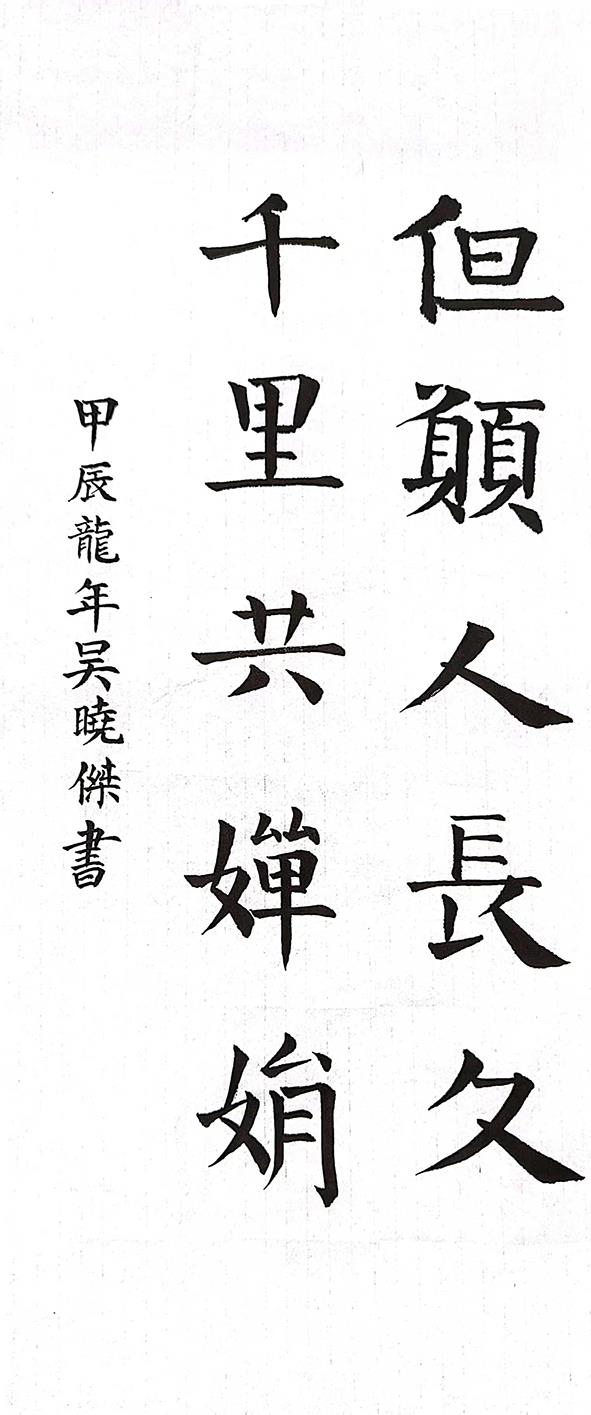 但願人長久
千里共嬋娟
甲辰龍年吴曉傑書